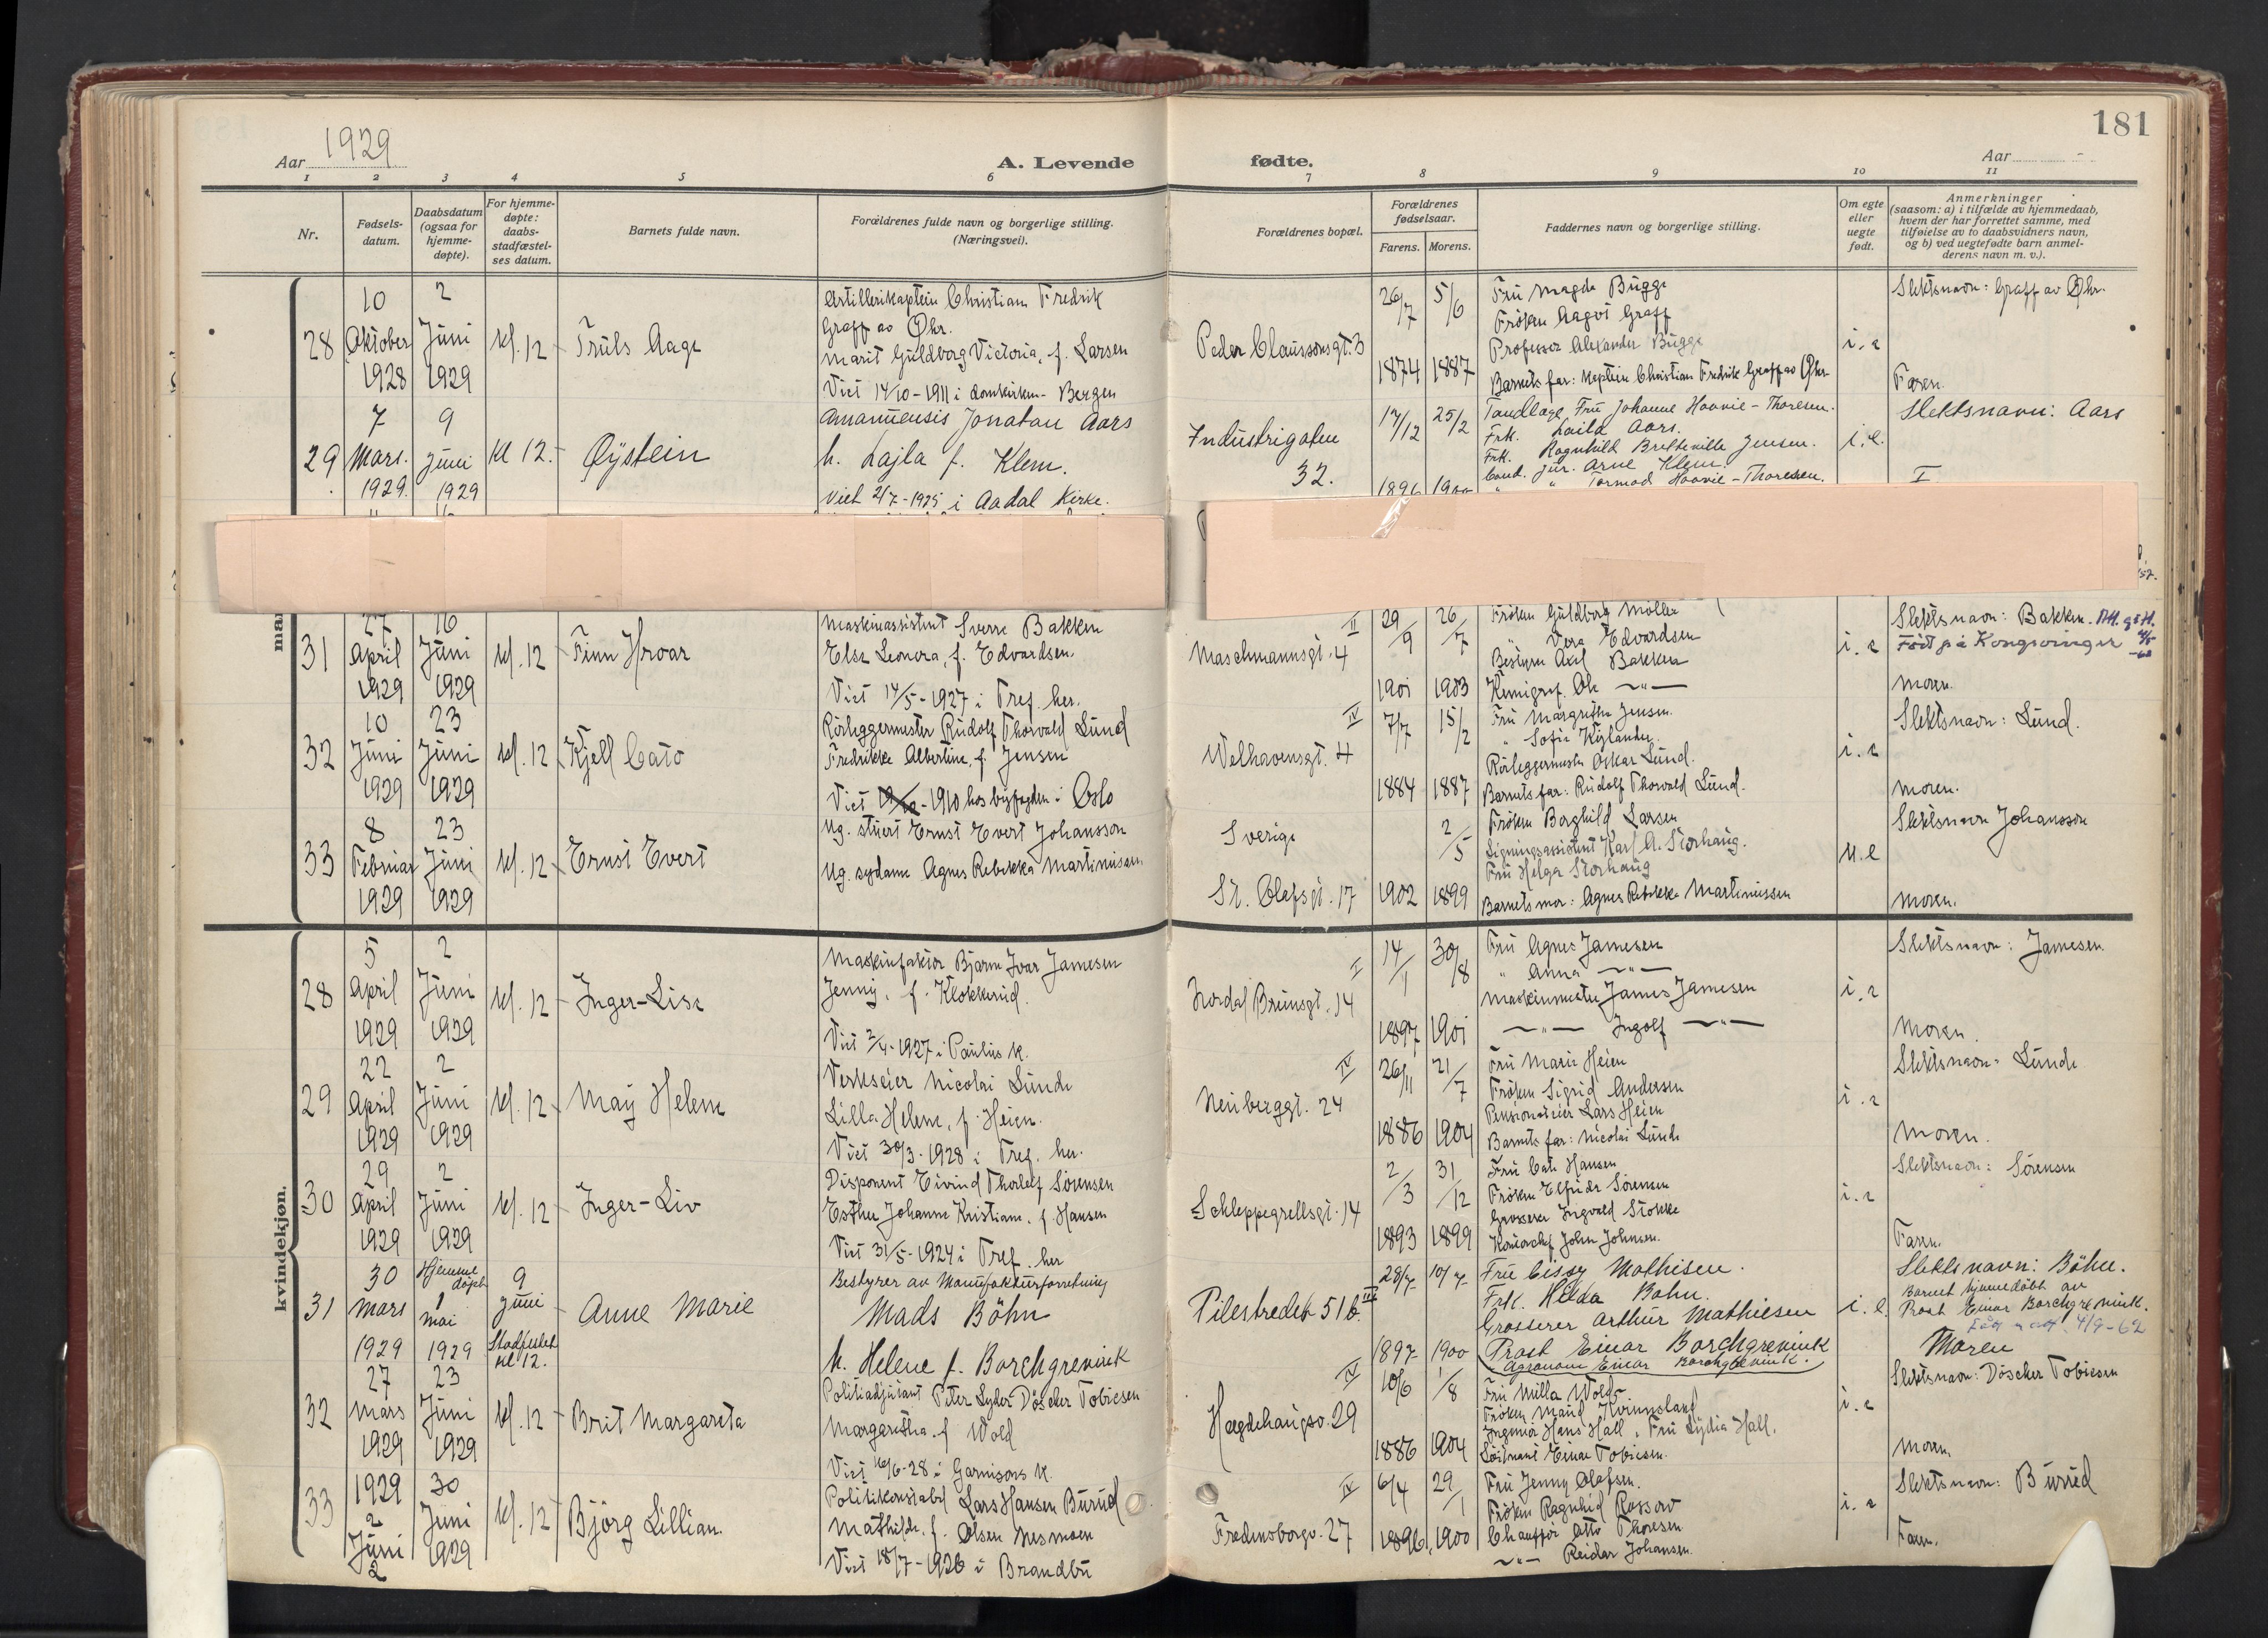 181
Aar 1929
A. Levende fødte.
Aar
1 2 3 4 5 6 7 8 9 10 11
Nr.
Fødsels-
datum.
Daabsdatum
(ogsaa for
hjemme-
døpte).
For hjemme-
døpte:
daabs-
stadfæstel-
ses datum.
Barnets fulde navn.
Forældrenes fulde navn og borgerlige stilling.
(Næringsvei).
Forældrenes bopæl.
Forældrenes
fødselsaar.
Farens. Morens.
Faddernes navn og borgerlige stilling.
Om egte
eller
uegte
født.
Anmerkninger
(saasom: a) i tilfælde av hjemmedaab,
hvem der har forrettet samme, med
tilføielse av to daabsvidners navn,
og b) ved uegtefødte barn anmel-
derens navn m. v.).
28
10
Oktober
1928
2
Juni
1929
kl. 12
Truls Aage
Artillerikaptein Christian Fredrik
Graff av Ghr.
Marit Guldborg Victoria, f. Larsen
Viet 14/10-1911 i domkirken - Bergen
Peder Claussonsgt. 3
26/7 5/6
1874 1887
Fru Magda Bugge
Frøken Aagot Graff
Professor Alexander Bugge
Barnets far: Kaptein Christian Fredrik Graff av Ghr.
i. e
Slektsnavn: Graff av Ghr.
Faren.
29
7
Mars.
1929.
9
juni
1929
kl 12.
Øystein
Amanuensis Jonatan Aars
h. Lajla f. Klem.
Viet 2/7-1925 i Aadal Kirke.
Industrigaten
32.
17/12 25/2
1896 1900
Tandlæge, Fru Johanne Haavie-Thoresen.
Frk. Laila Aars.
Frk. Ragnhild Bretteville Jensen.
Cand. jur. Arne Klem.
" " Tormod Haavie-Thoresen.
i. e.
Slektsnavn: Aars
31
27
April
1929
16
Juni
1929
kl. 12
Finn Hroar
Maskinassistent Sverre Bakken
Else Leonora, f. Edvardsen.
Viet 14/5-1927 i Tref. her.
II
Maschmannsgt. 4
29/9 26/7
1901 1903
Frøken Guldborg Møller
" Vera Edvardsen
Bestyrer Axel Bakken
Kemigraf. Ole —"—
i. e
Slektsnavn: Bakken.
Født på Kongsvinger
moren.
32
10
Juni
1929
23
Juni
1929
kl. 12
Kjell Cato
Rørleggermester Rudolf Thorvald Lund
Fredrikke Albertine, f. Jensen
Viet 9/12-1910 hos byfogden i Oslo
IV
Welhavensgt. 4
7/7 15/2
1884 1887
Fru Margrethe Jensen.
" Sofie Kiylander.
Rørleggermester Oskar Lund.
Barnets far: Rudolf Thorvald Lund.
i. e
Slektsnavn: Lund.
moren.
33
8
Februar
1929
23
Juni
1929
kl. 12
Ernst Evert
Ug. stuert Ernst Evert Johansson
Ug. sydame Agnes Rebekka Martinussen
Sverige
St. Olafsgt. 17
2/5
1902 1899
Frøken Borghild Larsen
Ligningsassistent Karl A. Storhaug.
Fru Helga Storhaug
Barnets mor: Agnes Rebekka Martinussen
u. e
Slektsnavn Johansson
moren.
kvindekjøn.
28
5
April
1929
2
Juni
1929
kl. 12
Inger-Lise
Maskinfaktor Bjarne Ivar Jamesen
Jenny, f. Klokkerud.
Viet 2/4-1927 i Paulus k.
I
Nordal Brunsgt. 14
14/1 30/8
1897 1901
Fru Agnes Jamesen
" Anna —"—
Maskinmester James Jamesen
—"— Ingolf —"—
i. e
Slektsnavn: Jamesen.
Moren.
29
22
April
1929
2
Juni
1929
kl. 12
May Helene
Verkseier Nicolai Lunde
Lilla Helene, f. Heien.
Viet 30/3-1928 i Tref. her.
IV
Neuberggt. 24
26/11 21/7
1886 1904
Fru Marie Heien
Frøken Sigrid Andersen
Pensionateier Lars Heien
Barnets far: Nicolai Lunde
i. e
Slektsnavn: Lunde
Moren.
30
29
April
1929
2
Juni
1929
kl. 12
Inger-Liv
Disponent Eivind Thorleif Sørensen
Esther Johanne Kristiane, f. Hansen
Viet 31/5-1924 i Tref. her
Schleppegrellsgt. 14
2/3 31/12
1893 1899
Fru Cate Hansen
Frøken Elfride Sørensen
Grosserer Ingvald Stokke
Kontorchef John Johnsen.
i. e
Slektsnavn: Sørensen
Faren.
31
30
Mars
1929
Hjemme
døpt
1
mai
1929
9
juni
Stadfestet
kl 12.
Anne Marie
Bestyrer av Manufakturforretning
Mads Bøhn
h. Helene f. Borchgrevink
III
Pilestredet 51b.
28/7 10/7
1897 1900
Fru Cissy Mathisen.
Frk. Helda Bøhn.
Grosserer Arthur Mathiesen
Prost Einar Borchgrevink
Agronom Einar Borchgrevink.
i. e.
Slektsnavn: Bøhn.
Barnet hjemmedøbt av
Prost Einar Borchgrevink.
Moren
32
27
mars
1929
23
Juni
1929
kl. 12
Brit Margareta
Politiadjutant Peter Lyder Døscher Tobiesen
Margaretha f. Wold
Viet 16/6-28 i Garnisons k.
IV
Hægdehaugsv. 29
10/6 1/8
1886 1904
Fru Milla Wold
Frøken Maud Kvinnsland
Ingeniør Hans Hall, Fru Lydia Hall.
Løitnant Einar Tobiesen.
i. e
Slektsnavn: Døscher Tobiesen
Moren
33
1929
2
Juni
2
30
Juni
1929
kl. 12
Bjørg Lillian.
Politikonstabel Lars Hansen Burud
Mathilde, f. Olsen Nesmoen
Viet 18/7-1926 i Brandbu
IV
Fredensborgv. 27
6/4 29/1
1896. 1900
Fru Jenny Olafsen.
Frøken Ragnhild Rossow
Chauffør Otto Thoresen
—"— Reidar Johansen.
i. e
Slektsnavn: Burud
Faren.